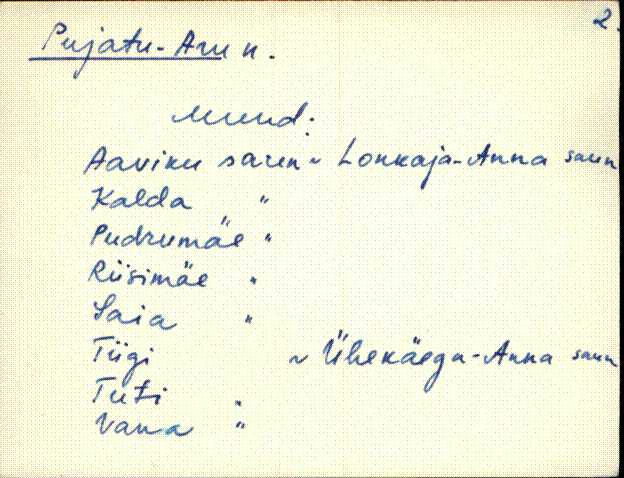 2.
Pujatu-Aru n.
muud:
Aaviku saun ~ Lonkaja-Anna saun
Kalda "
Pudrumäe "
Riisimäe "
Saia "
Tiigi ~ Ühekäega-Anna saun
Tuti "
Vana "